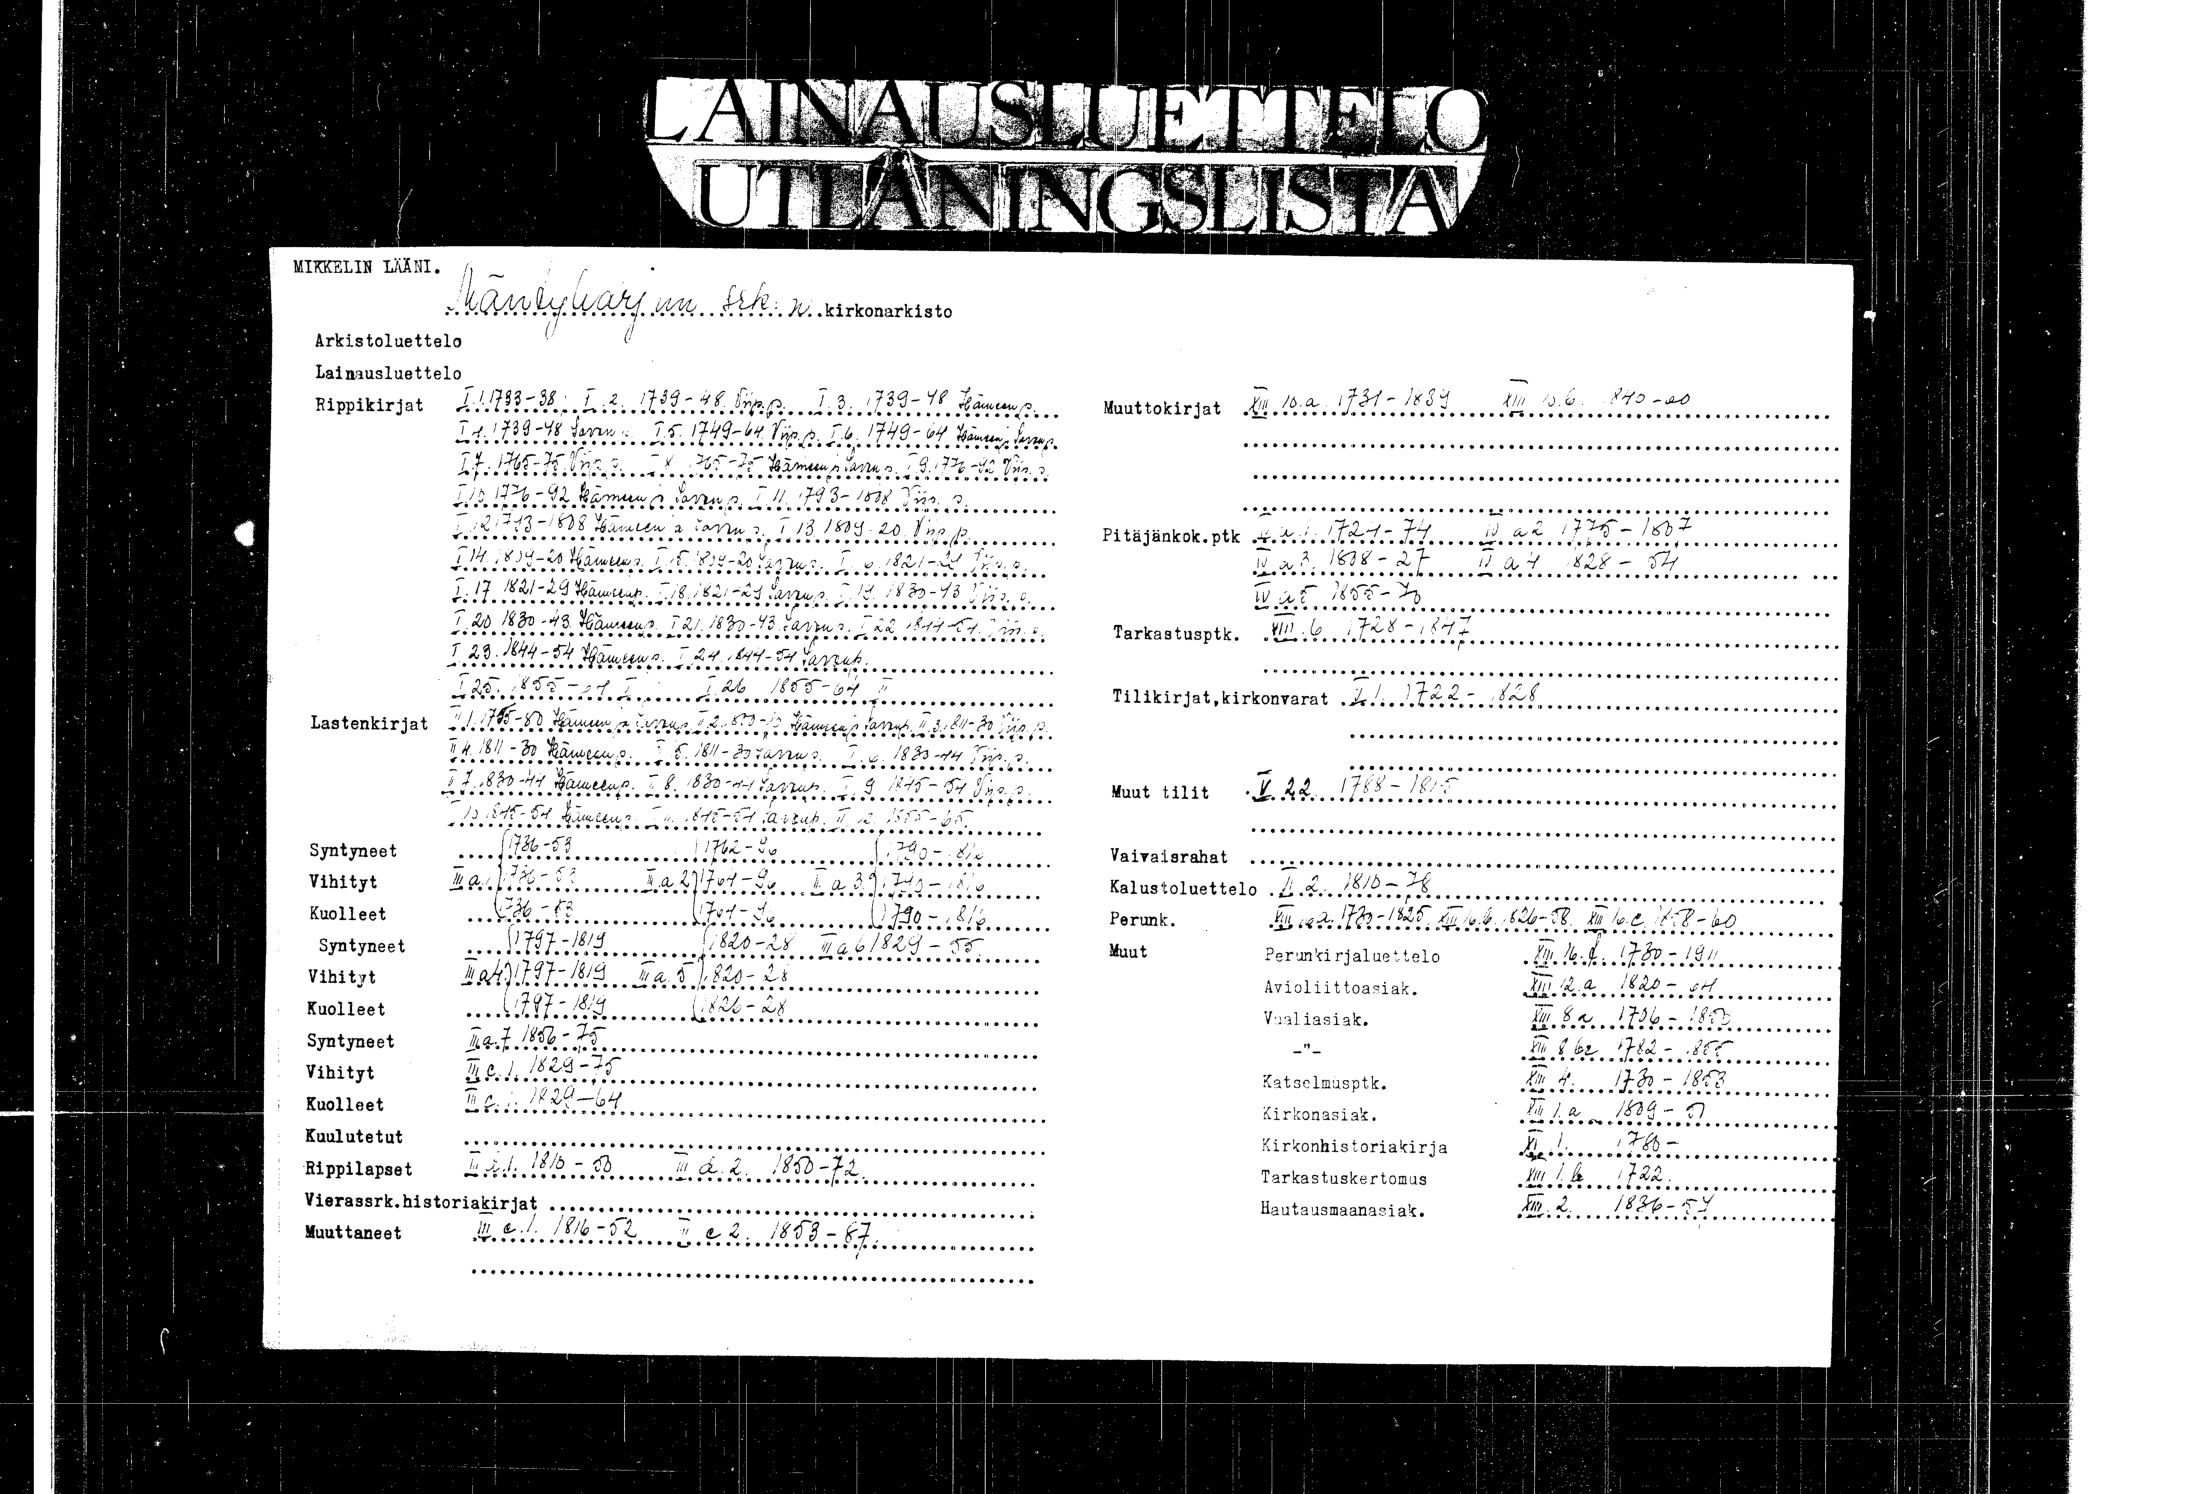 LAINAUSLUETTELO
UTLÅNINGSLISTA
MIKKELIN LÄÄNI.
Mäntyharjun srk:n kirkonarkisto
Arkistoluettelo
Lainausluettelo
Rippikirjat I.1.1733-38. I.2. 1739-48 Viip.p. I.3. 1739-48 Hämeen p.
I 4. 1739-48 Savon p. I.5. 1749-64 Viip.p. I.6. 1749-64 Hämeen p Savon p.
I.7. 1765-75 Viip.p. I 8. 1765-75 Hämeen p Savon p. I 9. 1776-92 Viip.p.
I.10. 1776-92 Hämeen p Savon p. I 11. 1793-1808 Viip.p.
I 12 1793-1808 Hämeen p Savon p. I 13 1809-20. Viip.p.
I 14. 1809-20 Hämeen p. I.15. 1809-20 Savon p. 1821-29 Viip.p.
I.17. 1821-29 Hämeen p. I 18. 1821-29 Savon p. I 19. 1830-43 Viip.p.
I.20 1830-43. Hämeen p. I 21. 1830-43. Savon p. I 22 1844-54. Viip.p.
I 23. 1844-54 Hämeen p. I 24. 1844-54 Savon p.
I 25. 1855-64 I I.26 1855-64 II
Lastenkirjat II.1. Hämeen p Savon p II 2. Hämeen p Savon p. II 3. 1811-30 Viip.p.
II 4. 1811-30 Hämeen p. 5. 1811-30 Savon p. 6. 1830-44 Viip.p.
II 7. 1830-44 Hämeen p. II 8. 1830-44 Savon p. 9 1845-54 Viip.p.
10. 1845-54 Hämeen p. 11. 1845-54 Savon p. II 12. 1855-65.
Syntyneet 1736-53 1762-96 1790-1816
Vihityt III a.1 1736-53 III.a.2 1764-96 III a 3. 1790-1816
Kuolleet 1736-53 1764-96 1790-1816
Syntyneet 1797-1819 1820-28 III a 6 1829-55
Vihityt III a4 1797-1819 III a.5 1820-28
Kuolleet 1797-1819 1826-28
Syntyneet III a.7 1856-75
Vihityt III c.1. 1829-75
Kuolleet 1829-64
Kuulutetut
Rippilapset 1810-50 III d.2. 1850-72
Vierassrk.historiakirjat
Muuttaneet III e.1. 1816-52 e 2. 1853-67.
Muuttokirjat XIII 10.a. 1731-1839 XIII 10.b. 1840-60
Pitäjänkok.ptk IV.a.1. 1724-74 IV a 2 1775-1807
IV a 3. 1808-27 IV a 4 1828-54
IV a 5 1855-70
Tarkastusptk. VIII.6. 1728-1847
Tilikirjat,kirkonvarat V.1. 1722-1828
Muut tilit V 22. 1788-1815
Vaivaisrahat
Kalustoluettelo 2. 1810-78
Perunk. XIII 16.a. 1730-1825 XIII 16.b. 1826-58. XIII 16.c. 1858-60
Muut
Perunkirjaluettelo XIII 16.d. 1730-1911
Avioliittoasiak. XIII 12.a 1820-64
Vaaliasiak. XIII 8 a 1850
-"- XIII 8 1782-1855
Katselmusptk. XIII 4. 1730-1853
Kirkonasiak. XIII 1.a 1809-51
Kirkonhistoriakirja XI.1. 1780-
Tarkastuskertomus XIII 1.b 1722.
Hautausmaanasiak. XIII.2. 1836-57